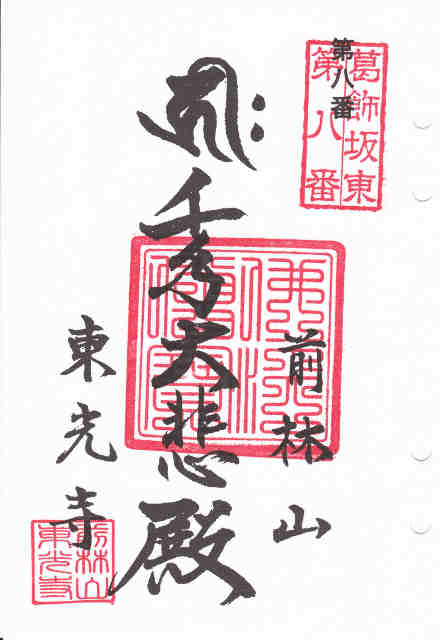 第八番
葛飾坂東
第八番
前林山
𑖮𑖿𑖨𑖱𑖾 千手大悲殿
佛法僧寶
東光寺
前林山
東光寺